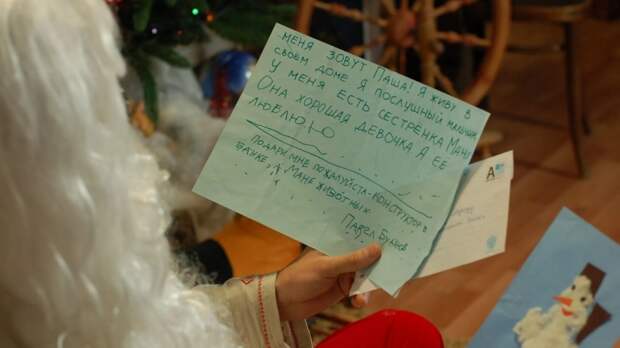 МЕНЯ ЗОВУТ ПАША! Я ЖИВУ В
СВОЕМ ДОМЕ Я ПОСЛУШНЫЙ МАЛЬЧИК
У МЕНЯ ЕСТЬ СЕСТРЁНКА МАНЯ
ОНА ХОРОШАЯ ДЕВОЧКА Я ЕЁ
ЛЮБЛЮ
ПОДАРИ МНЕ ПОЖАЛУЙСТА-КОНСТРУКТОР В
А МАНЕ ЖИВОТНЫХ
ПАВЕЛ
А